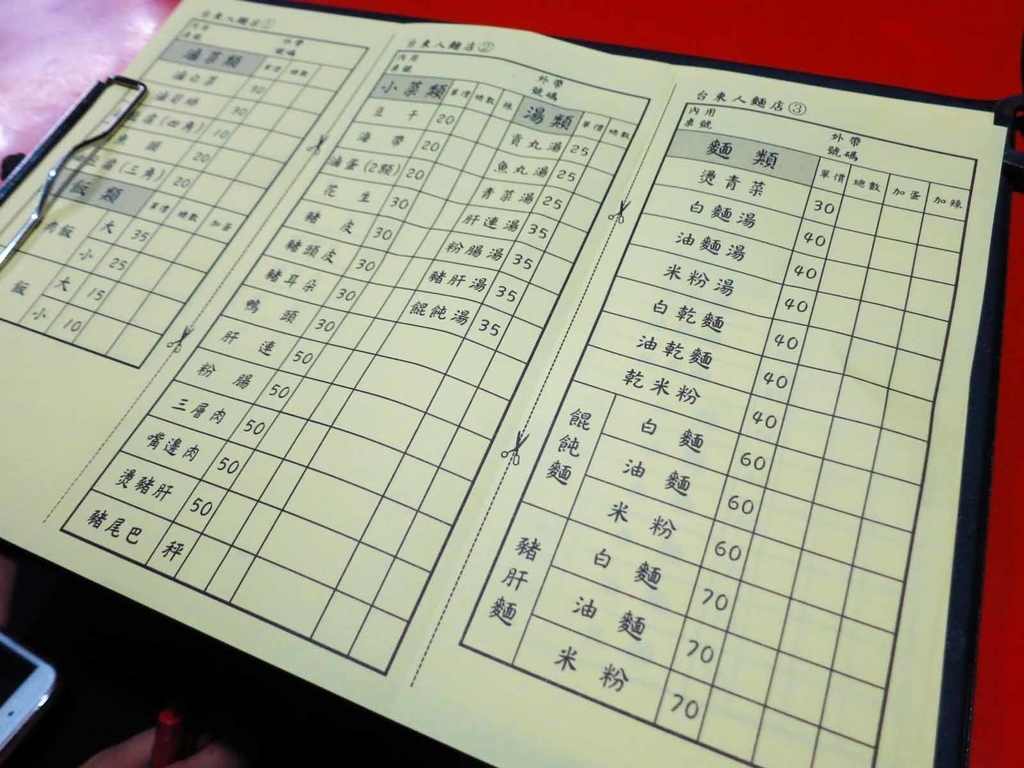 台東人麵店①
內用 外帶
桌號 號碼
滷菜類 單價 總數
滷白菜 30
30
豆腐(四角) 10
20
(三角) 20
飯類 單價 總數 加蛋
肉飯 大 35
小 25
飯 大 15
小 10
台東人麵店②
內用 外帶
桌號 號碼
小菜類 單價 總數 辣
豆干 20
海帶 20
滷蛋(2顆) 20
花生 30
豬皮 30
豬頭皮 30
豬耳朵 30
鴨頭 30
肝連 50
粉腸 50
三層肉 50
嘴邊肉 50
燙豬肝 50
豬尾巴 秤
湯類 單價 總數
貢丸湯 25
魚丸湯 25
青菜湯 25
肝連湯 35
粉腸湯 35
豬肝湯 35
餛飩湯 35
台東人麵店③
內用 外帶
桌號 號碼
麵類 單價 總數 加蛋 加辣
燙青菜 30
白麵湯 40
油麵湯 40
米粉湯 40
白乾麵 40
油乾麵 40
乾米粉 40
餛飩麵
白麵 60
油麵 60
米粉 60
豬肝麵
白麵 70
油麵 70
米粉 70